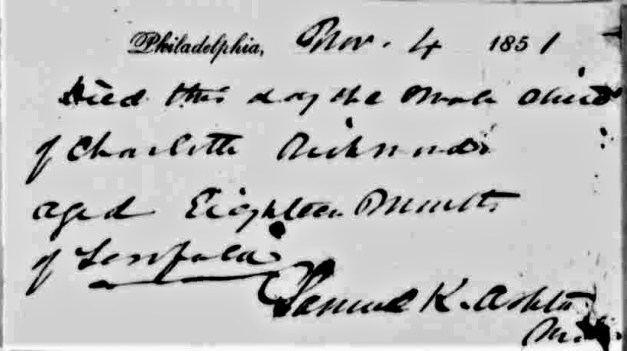 Philadelphia, Nov. 4 1851
Died this day the Male Child
of Charlotte Richmond
aged Eighteen Months
of
Samuel K. Ashton
M.D.